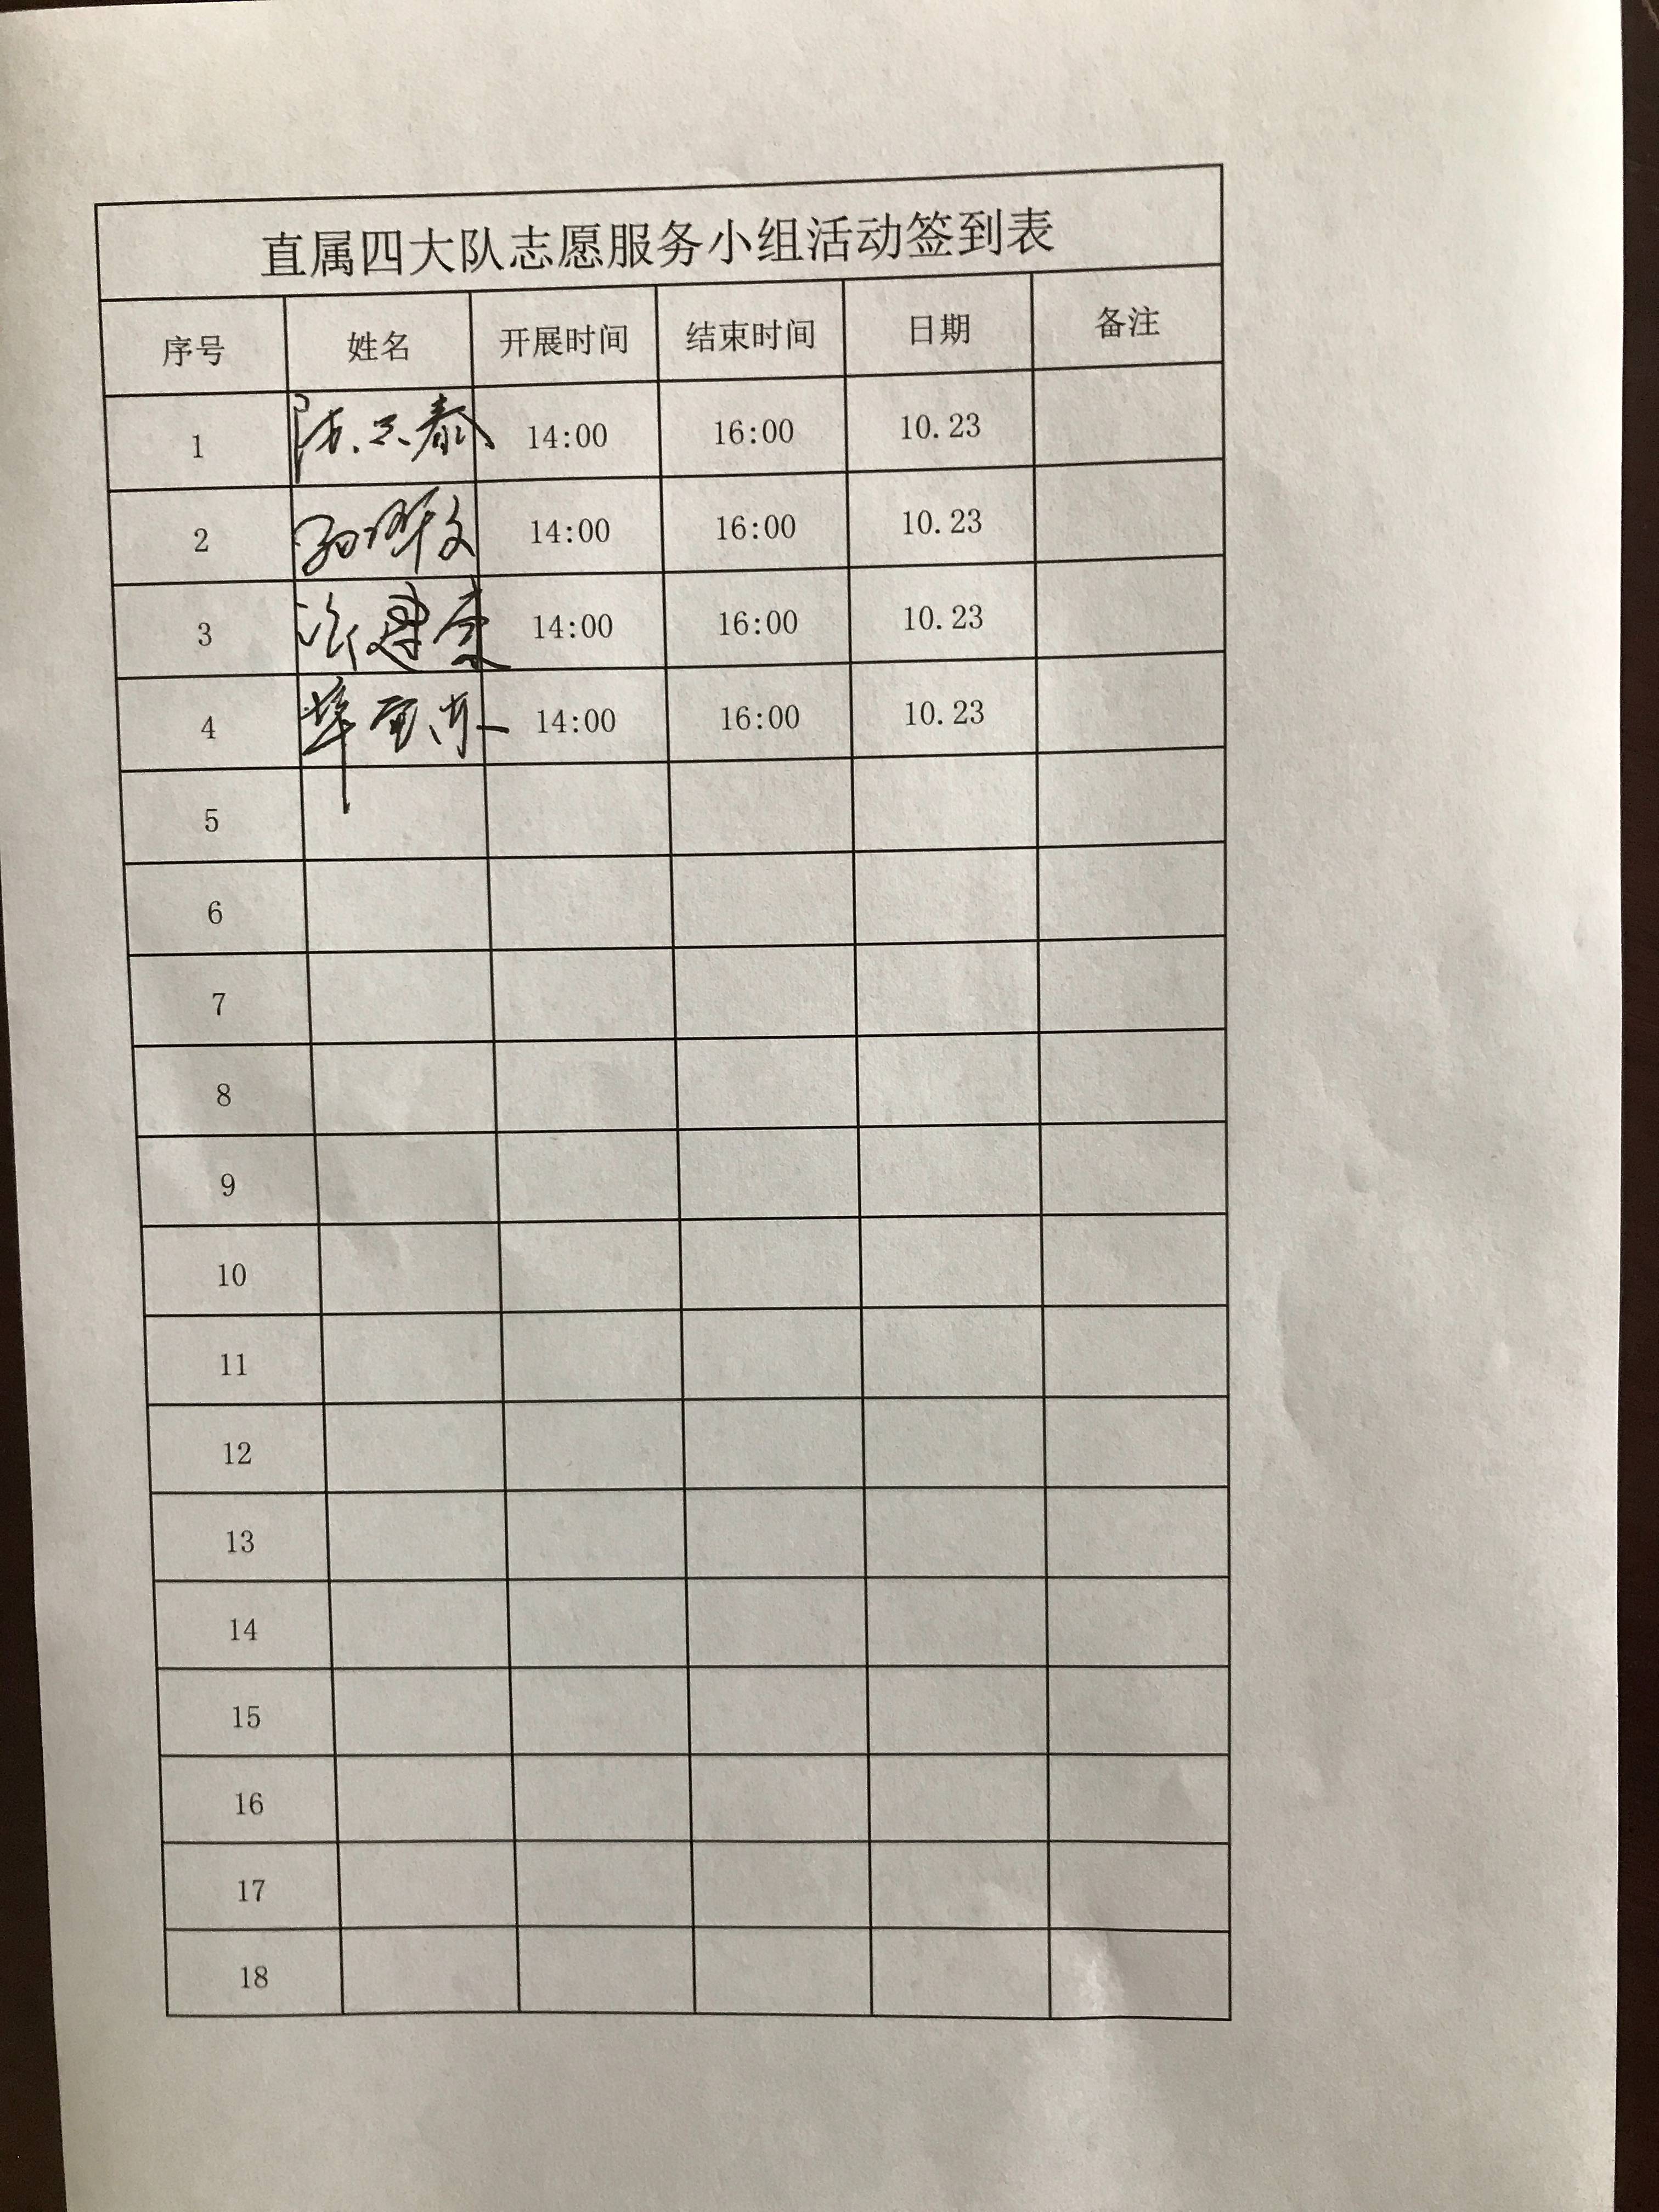 直属四大队志愿服务小组活动签到表
序号 姓名 开展时间 结束时间 日期 备注
1 14:00 16:00 10.23
2 14:00 16:00 10.23
3 建 14:00 16:00 10.23
4 14:00 16:00 10.23
5
6
7
8
9
10
11
12
13
14
15
16
17
18